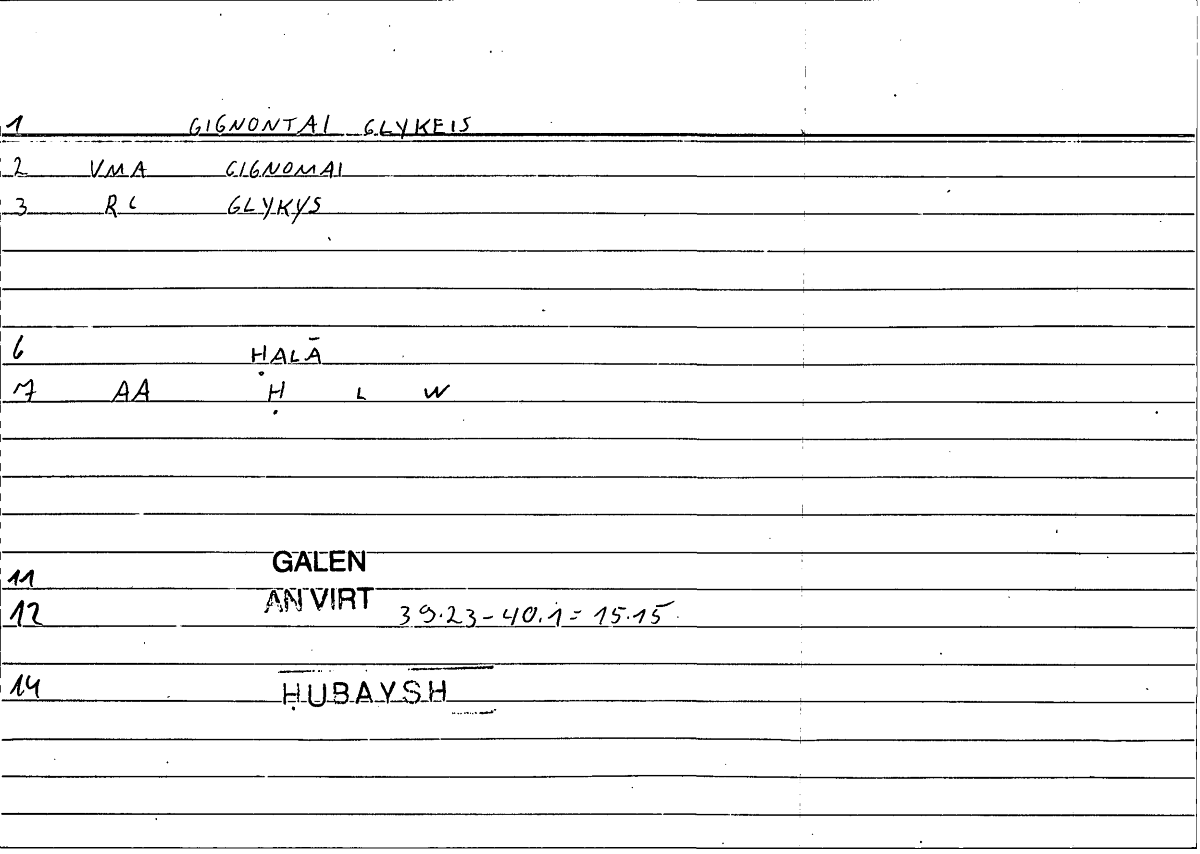 1 GIGNONTAI GLYKEIS
2 VMA GIGNOMAI
3 RC GLYKYS
6 ḤALĀ
7 AA Ḥ L W
11 GALEN
12 AN VIRT 39.23-40.1=15.15
14 ḤUBAYSH